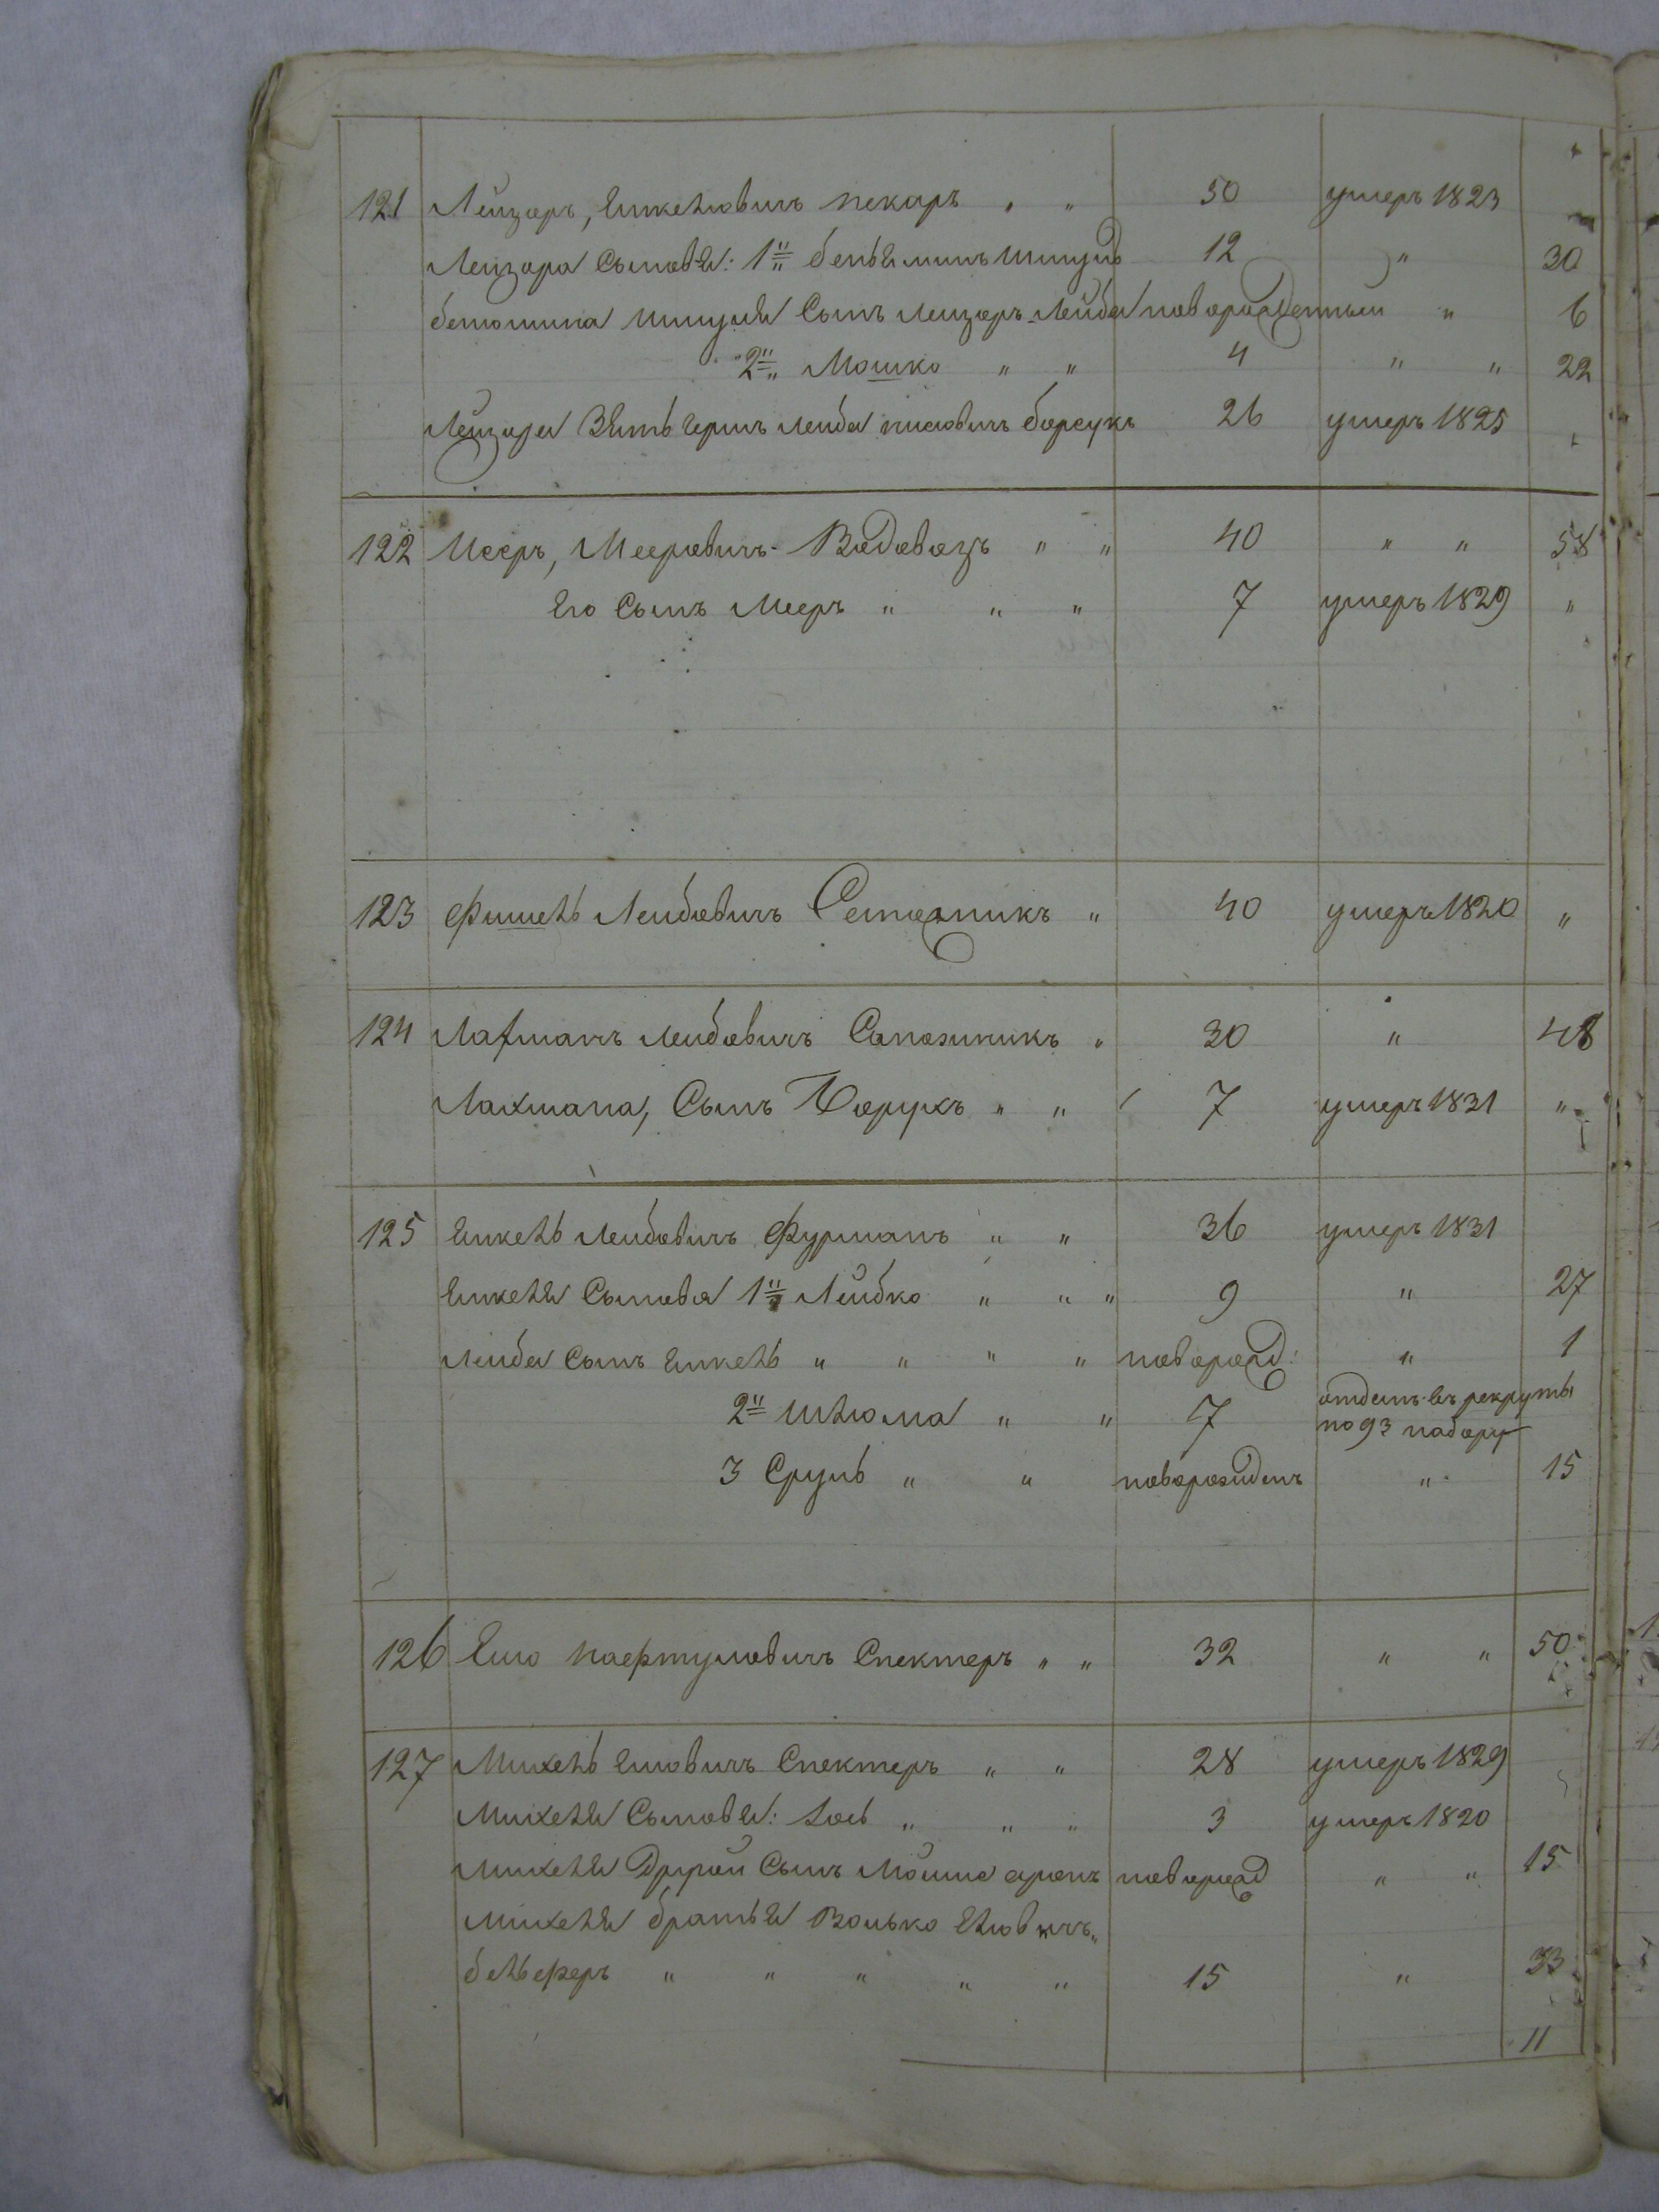 121 Лейзоръ, Янкелювичъ пекаръ " " 50 умеръ 1823
Лейзора Сыновья: 1й беньяминъ шмуль 12 " 30
бенюмина шмуля Сынъ лейзоръ-лейба новорожденный " 6
2й Мошко " " 4 " " 22
Лейзора Зять герцъ лейба борсукъ 26 умеръ 1825
122 Мееръ, Мееровичъ Водовозъ " " 40 " " 58
Его Сынъ Мееръ " " " 7 умеръ 1829 "
123 Фишель Лейбовичъ " 40 умеръ 1820 "
124 Лахманъ лейбовичъ Сапожникъ " 30 " 48
Лахмана, Сынъ Борухъ " " 7 умеръ 1831 "
125 Янкель лейбовичъ Фурманъ " " 36 умеръ 1831
Янкеля Сыновья 1й Лейбко " " " 9 " 27
лейба Сынъ Янкель " " " " новорожд: " 1
2й шлюма " " 7 отданъ въ рекруты
по 93 набору
3 Сруль " " новорожденъ " 15
126 Ешо нафтулевичъ Спекторъ " " 32 " " 50
127 Михель Ешовичъ Спекторъ " " 28 умеръ 1829
Михеля Сыновья: " " " 3 умеръ 1820
Михеля Другой Сынъ Мошко аронъ новорожд " " 15
Михеля братья Волько
бельферъ " " " " " 15 " 33
11